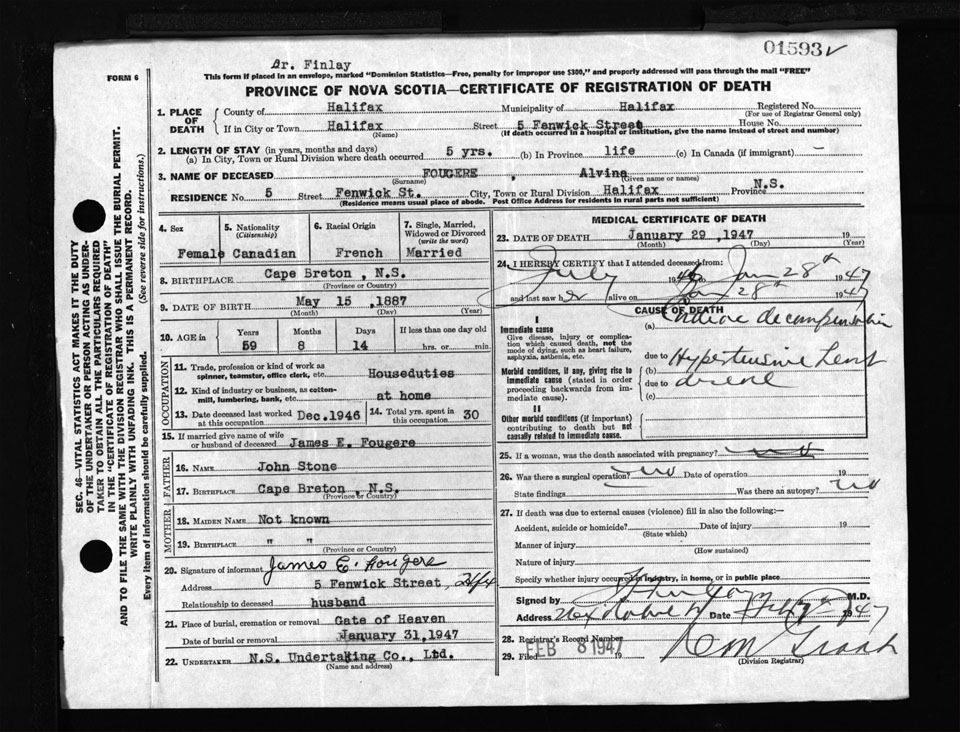 01593
Dr. Finlay
FORM 6
This form if placed in an envelope, marked "Dominion Statistics—Free, penalty for improper use $300," and properly addressed will pass through the mail "FREE"
PROVINCE OF NOVA SCOTIA—CERTIFICATE OF REGISTRATION OF DEATH
SEC. 46—VITAL STATISTICS ACT MAKES IT THE DUTY
OF THE UNDERTAKER OR PERSON ACTING AS UNDER-
TAKER TO OBTAIN ALL THE PARTICULARS REQUIRED
IN THE "CERTIFICATE OF REGISTRATION OF DEATH"
AND TO FILE THE SAME WITH THE DIVISION REGISTRAR WHO SHALL ISSUE THE BURIAL PERMIT.
WRITE PLAINLY WITH UNFADING INK. THIS IS A PERMANENT RECORD.
Every item of information should be carefully supplied. (See reverse side for instructions.)
1. PLACE OF DEATH
County of Halifax Municipality of Halifax Registered No.
(For use of Registrar General only)
If in City or Town Halifax Street 5 Fenwick Street House No.
(Name) (If death occurred in a hospital or institution, give the name instead of street and number)
2. LENGTH OF STAY (in years, months and days)
(a) In City, Town or Rural Division where death occurred 5 yrs. (b) In Province life (c) In Canada (if immigrant) —
3. NAME OF DECEASED FOUGERE , Alvina
(Surname) (Given name or names)
RESIDENCE No. 5 Street Fenwick St. City, Town or Rural Division Halifax Province N.S.
(Residence means usual place of abode. Post Office Address for residents in rural parts not sufficient)
4. Sex
Female
5. Nationality
(Citizenship)
Canadian
6. Racial Origin
French
7. Single, Married,
Widowed or Divorced
(write the word)
Married
8. BIRTHPLACE Cape Breton , N.S.
(Province or Country)
9. DATE OF BIRTH May 15 ,1887
(Month) (Day) (Year)
10. AGE in
Years Months Days If less than one day old
59 8 14 hrs. or min.
OCCUPATION
11. Trade, profession or kind of work as
spinner, teamster, office clerk, etc. Houseduties
12. Kind of industry or business, as cotton-
mill, lumbering, bank, etc. at home
13. Date deceased last worked
at this occupation Dec. 1946
14. Total yrs. spent in
this occupation 30
15. If married give name of wife
or husband of deceased James E. Fougere
FATHER
16. NAME John Stone
17. BIRTHPLACE Cape Breton , N.S.
(Province or Country)
MOTHER
18. MAIDEN NAME Not known
19. BIRTHPLACE " "
(Province or Country)
20. Signature of informant James E. Fougere
Address 5 Fenwick Street, Hfx
Relationship to deceased husband
21. Place of burial, cremation or removal Gate of Heaven
Date of burial or removal January 31,1947
22. UNDERTAKER N.S. Undertaking Co., Ltd.
(Name and address)
MEDICAL CERTIFICATE OF DEATH
23. DATE OF DEATH January 29 ,1947 19
(Month) (Day) (Year)
24. I HEREBY CERTIFY that I attended deceased from:
July 1946 to Jan 28th 1947
and last saw her alive on Jan 28th 1947
CAUSE OF DEATH
I
Immediate cause
Give disease, injury or complica-
tion which caused death, not the
mode of dying, such as heart failure,
asphyxia, asthenia, etc.
(a) Cardiac decompensation
due to
Morbid conditions, if any, giving rise to
immediate cause (stated in order
proceeding backwards from im-
mediate cause).
(b) Hypertensive heart
due to disease
(c)
II
Other morbid conditions (if important)
contributing to death but not
causally related to immediate cause.
25. If a woman, was the death associated with pregnancy? no
26. Was there a surgical operation? no Date of operation 19
State findings Was there an autopsy? no
27. If death was due to external causes (violence) fill in also the following:—
Accident, suicide or homicide? Date of injury 19
(State which)
Manner of injury
(How sustained)
Nature of injury
Specify whether injury occurred in industry, in home, or in public place
Signed by M.D.
Address Date 1947
28. Registrar's Record Number
29. Filed FEB 8 1947 19
(Division Registrar)